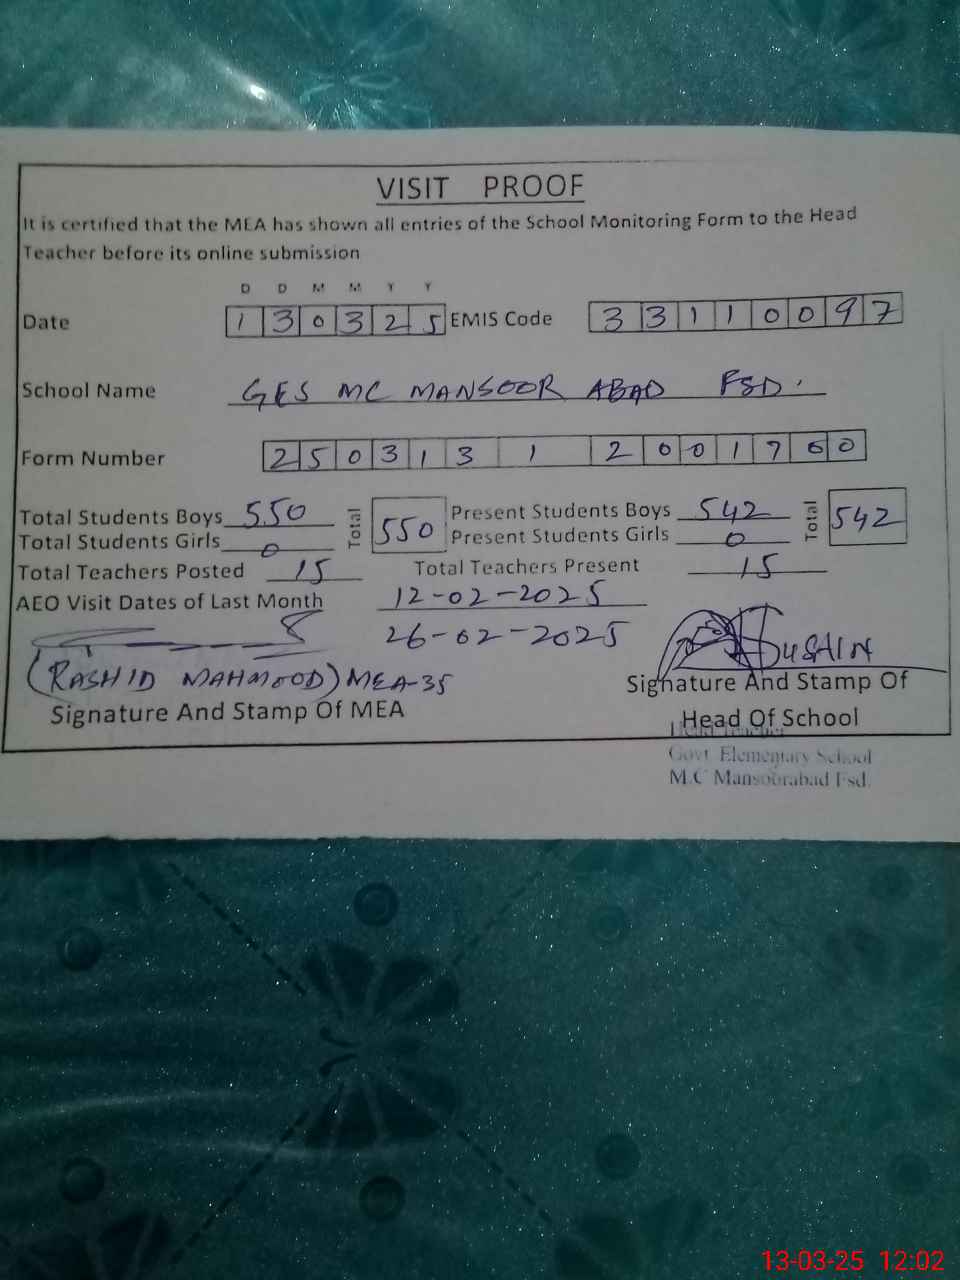 VISIT PROOF
It is certified that the MEA has shown all entries of the School Monitoring Form to the Head
Teacher before its online submission
D D M M Y Y
Date 1 3 0 3 2 5 EMIS Code 3 3 1 1 0 0 9 7
School Name GES MC MANSOOR ABAD FSD.
Form Number 2 5 0 3 1 3 1 2 0 0 1 7 6 0
Total Students Boys 550 Total 550 Present Students Boys 542 Total 542
Total Students Girls 0 Present Students Girls 0
Total Teachers Posted 15 Total Teachers Present 15
AEO Visit Dates of Last Month 12-02-2025
26-02-2025
(RASHID MAHMOOD) MEA-35
Signature And Stamp Of MEA
Signature And Stamp Of
Head Of School
Head Teacher
Govt Elementary School
M.C Mansoorabad Fsd.
13-03-25 12:02